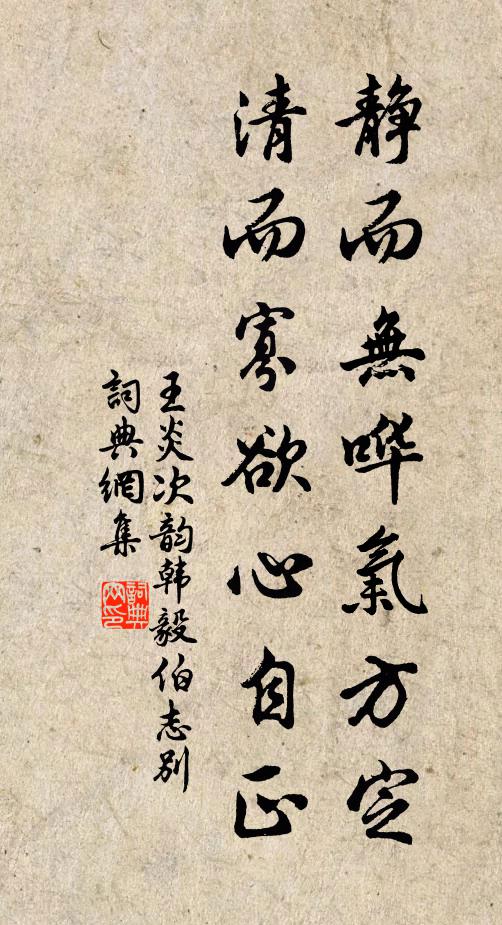 静而無哗氣方定
清而寡欲心自正
王炎次韵韩毅伯志别
詞典網集
詞典
网印